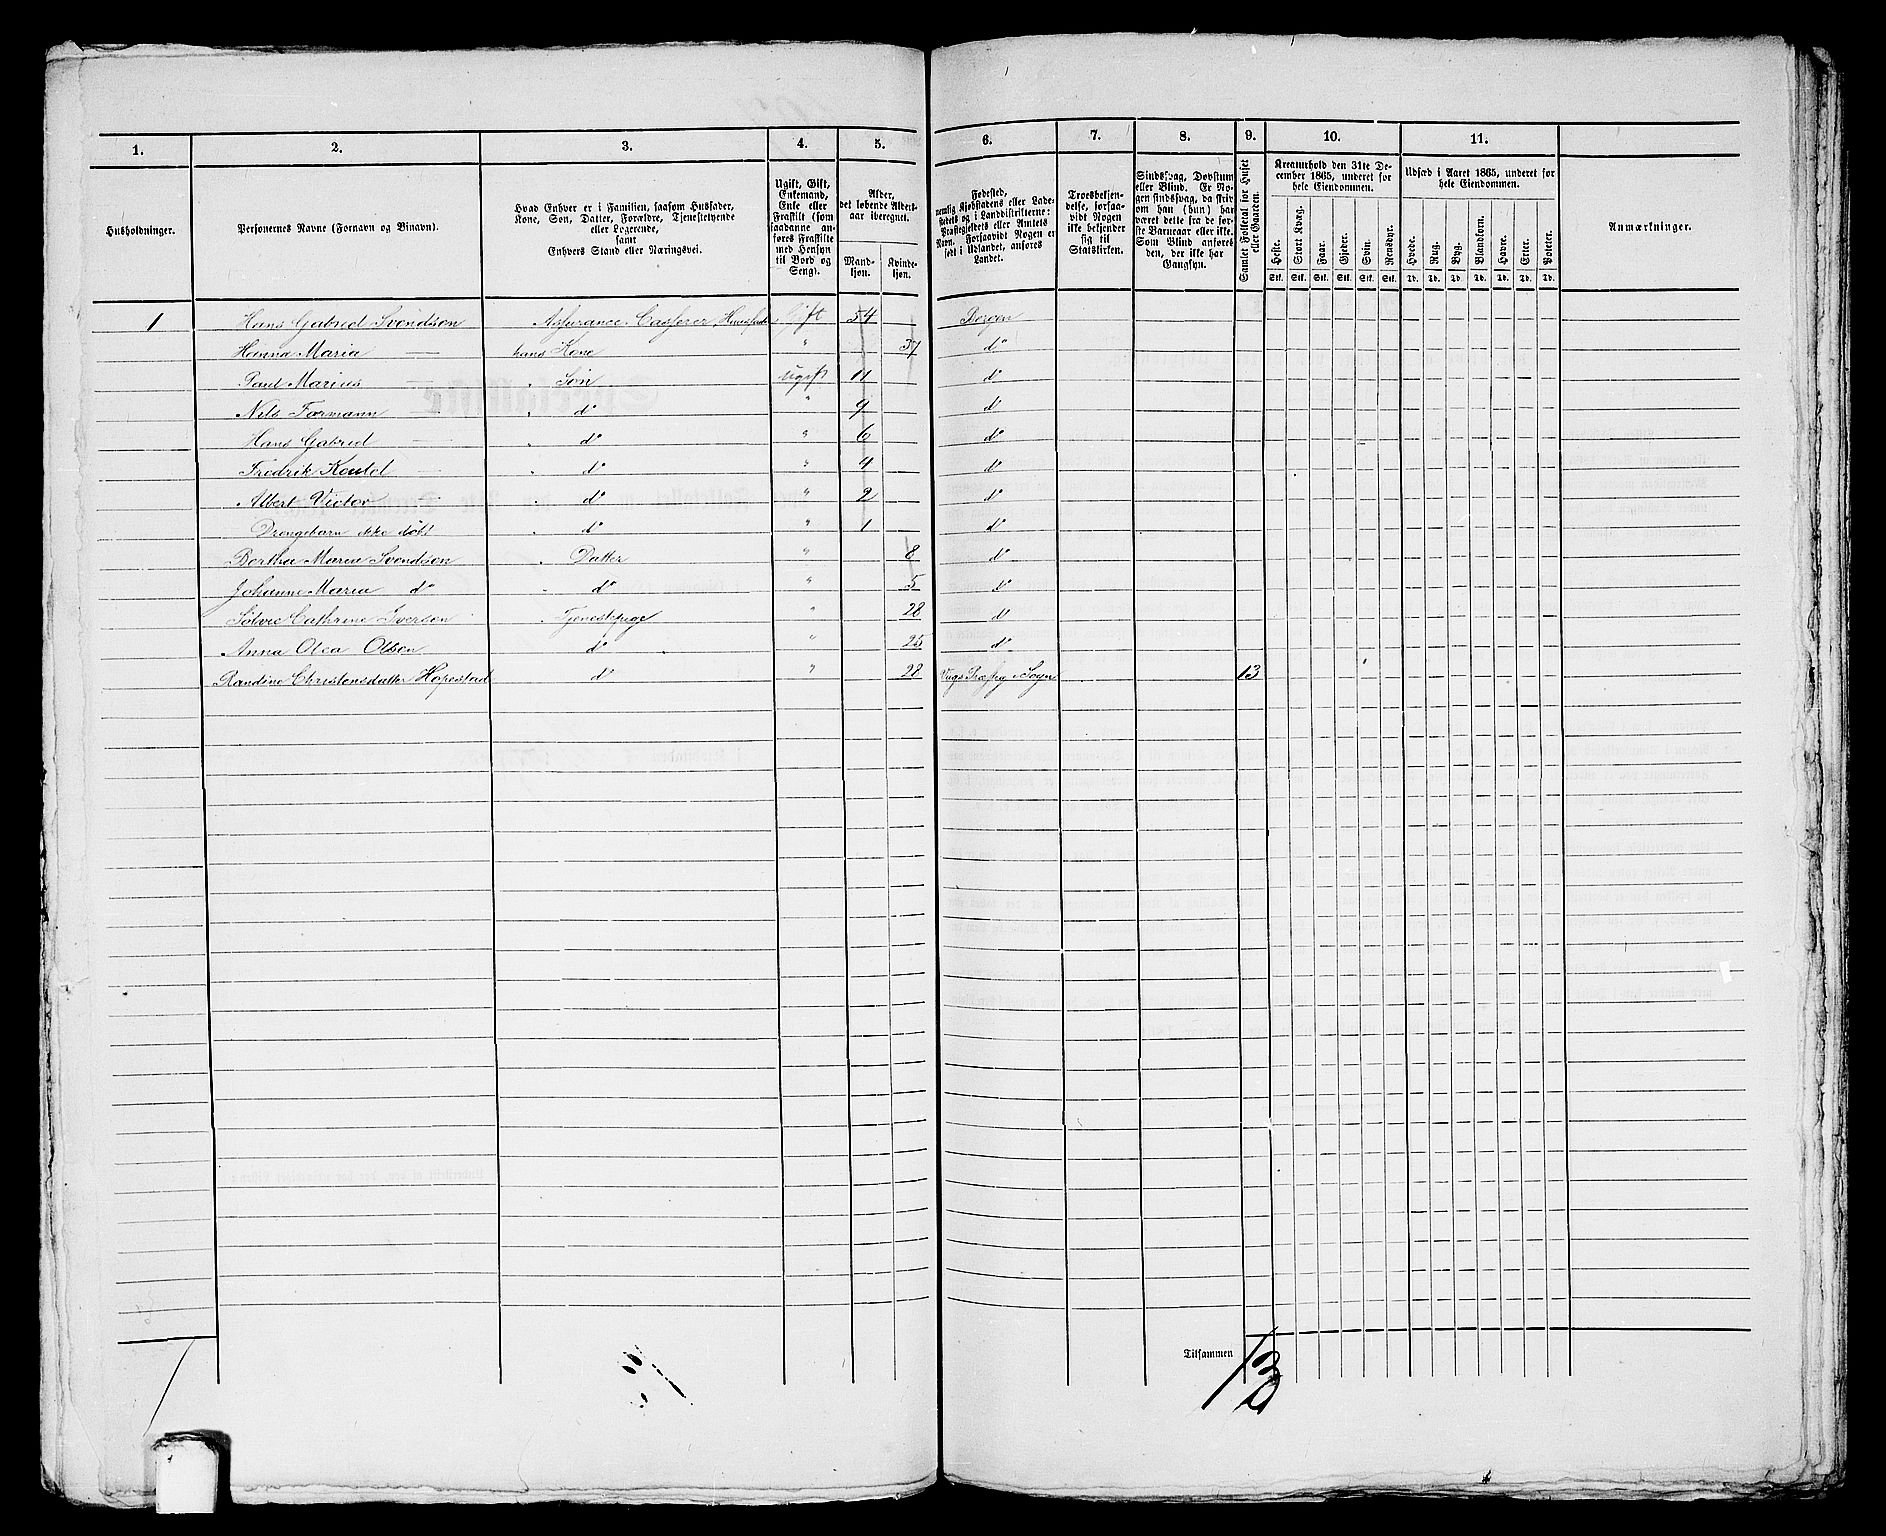 1. 2. 3. 4. 5. 6. 7. 8. 9. 10. 11.
Husholdninger.
Personernes Navne (Fornavn og Tilnavn).
Hvad Enhver er i Familien, saasom Husfader, Kone, Søn, Datter, Forældre, Tjenestetyende eller Logerende, samt Enhvers Stand eller Næringsvei.
Ugift, Gift, Enkemand, Enke eller Fraskilt (som saadanne anføres Fraskilte med Hensyn til Bord og Seng).
Alder, det løbende Alders-aar iberegnet.
Mand-kjøn. Kvinde-kjøn.
Fødested, nemlig Kjøbstadens eller Ladestedets og i Landdistrikterne: Præstegjeldets eller Amtets Navn. Forsaavidt Nogen er født i Udlandet, anføres Landet.
Troesbekjendelse, forsaavidt Nogen ikke bekjender sig til Statskirken.
Sindssvag, Døvstum eller Blind. Er Nogen sindssvag, da skriv om han (hun) har været dette fra de første Barneaar eller ikke. Som Blind anføres den, der ikke har Gangsyn.
Samlet Folketal for Huset eller Gaarden.
Kreaturhold den 31te December 1865, underet for hele Eiendommen.
Heste. Stort Kvæg. Faar. Gjeder. Svin. Rensdyr.
Stk. Stk. Stk. Stk. Stk. Stk.
Udsæd i Aaret 1865, underet for hele Eiendommen.
Hvede. Rug. Byg. Blandkorn. Havre. Erter. Poteter.
Td. Td. Td. Td. Td. Td. Td.
Anmærkninger.
1 Hans Gabriel Svendsen Assurance-Casserer, Husfader Gift 54 Bergen
Hanna Maria — hans Kone " 37 d°
Paul Marius — " Søn Ugift 11 d°
Nils Formann — " d° " 9 d°
Hans Gabriel — " d° " 6 d°
Fredrik — " d° " 4 d°
Albert Victor - " d° " 2 d°
Drengebarn ikke døbt " d° " 1 d°
Bertha Maria Svendsen " Datter " 8 d°
Johanne Maria d° " d° " 5 d°
Cathrine Iversen " Tjenestepige " 28 d°
Anna Olea Olsen d° " 25 d°
Randine Christensdatter d° " 28 13
Tilsammen 13